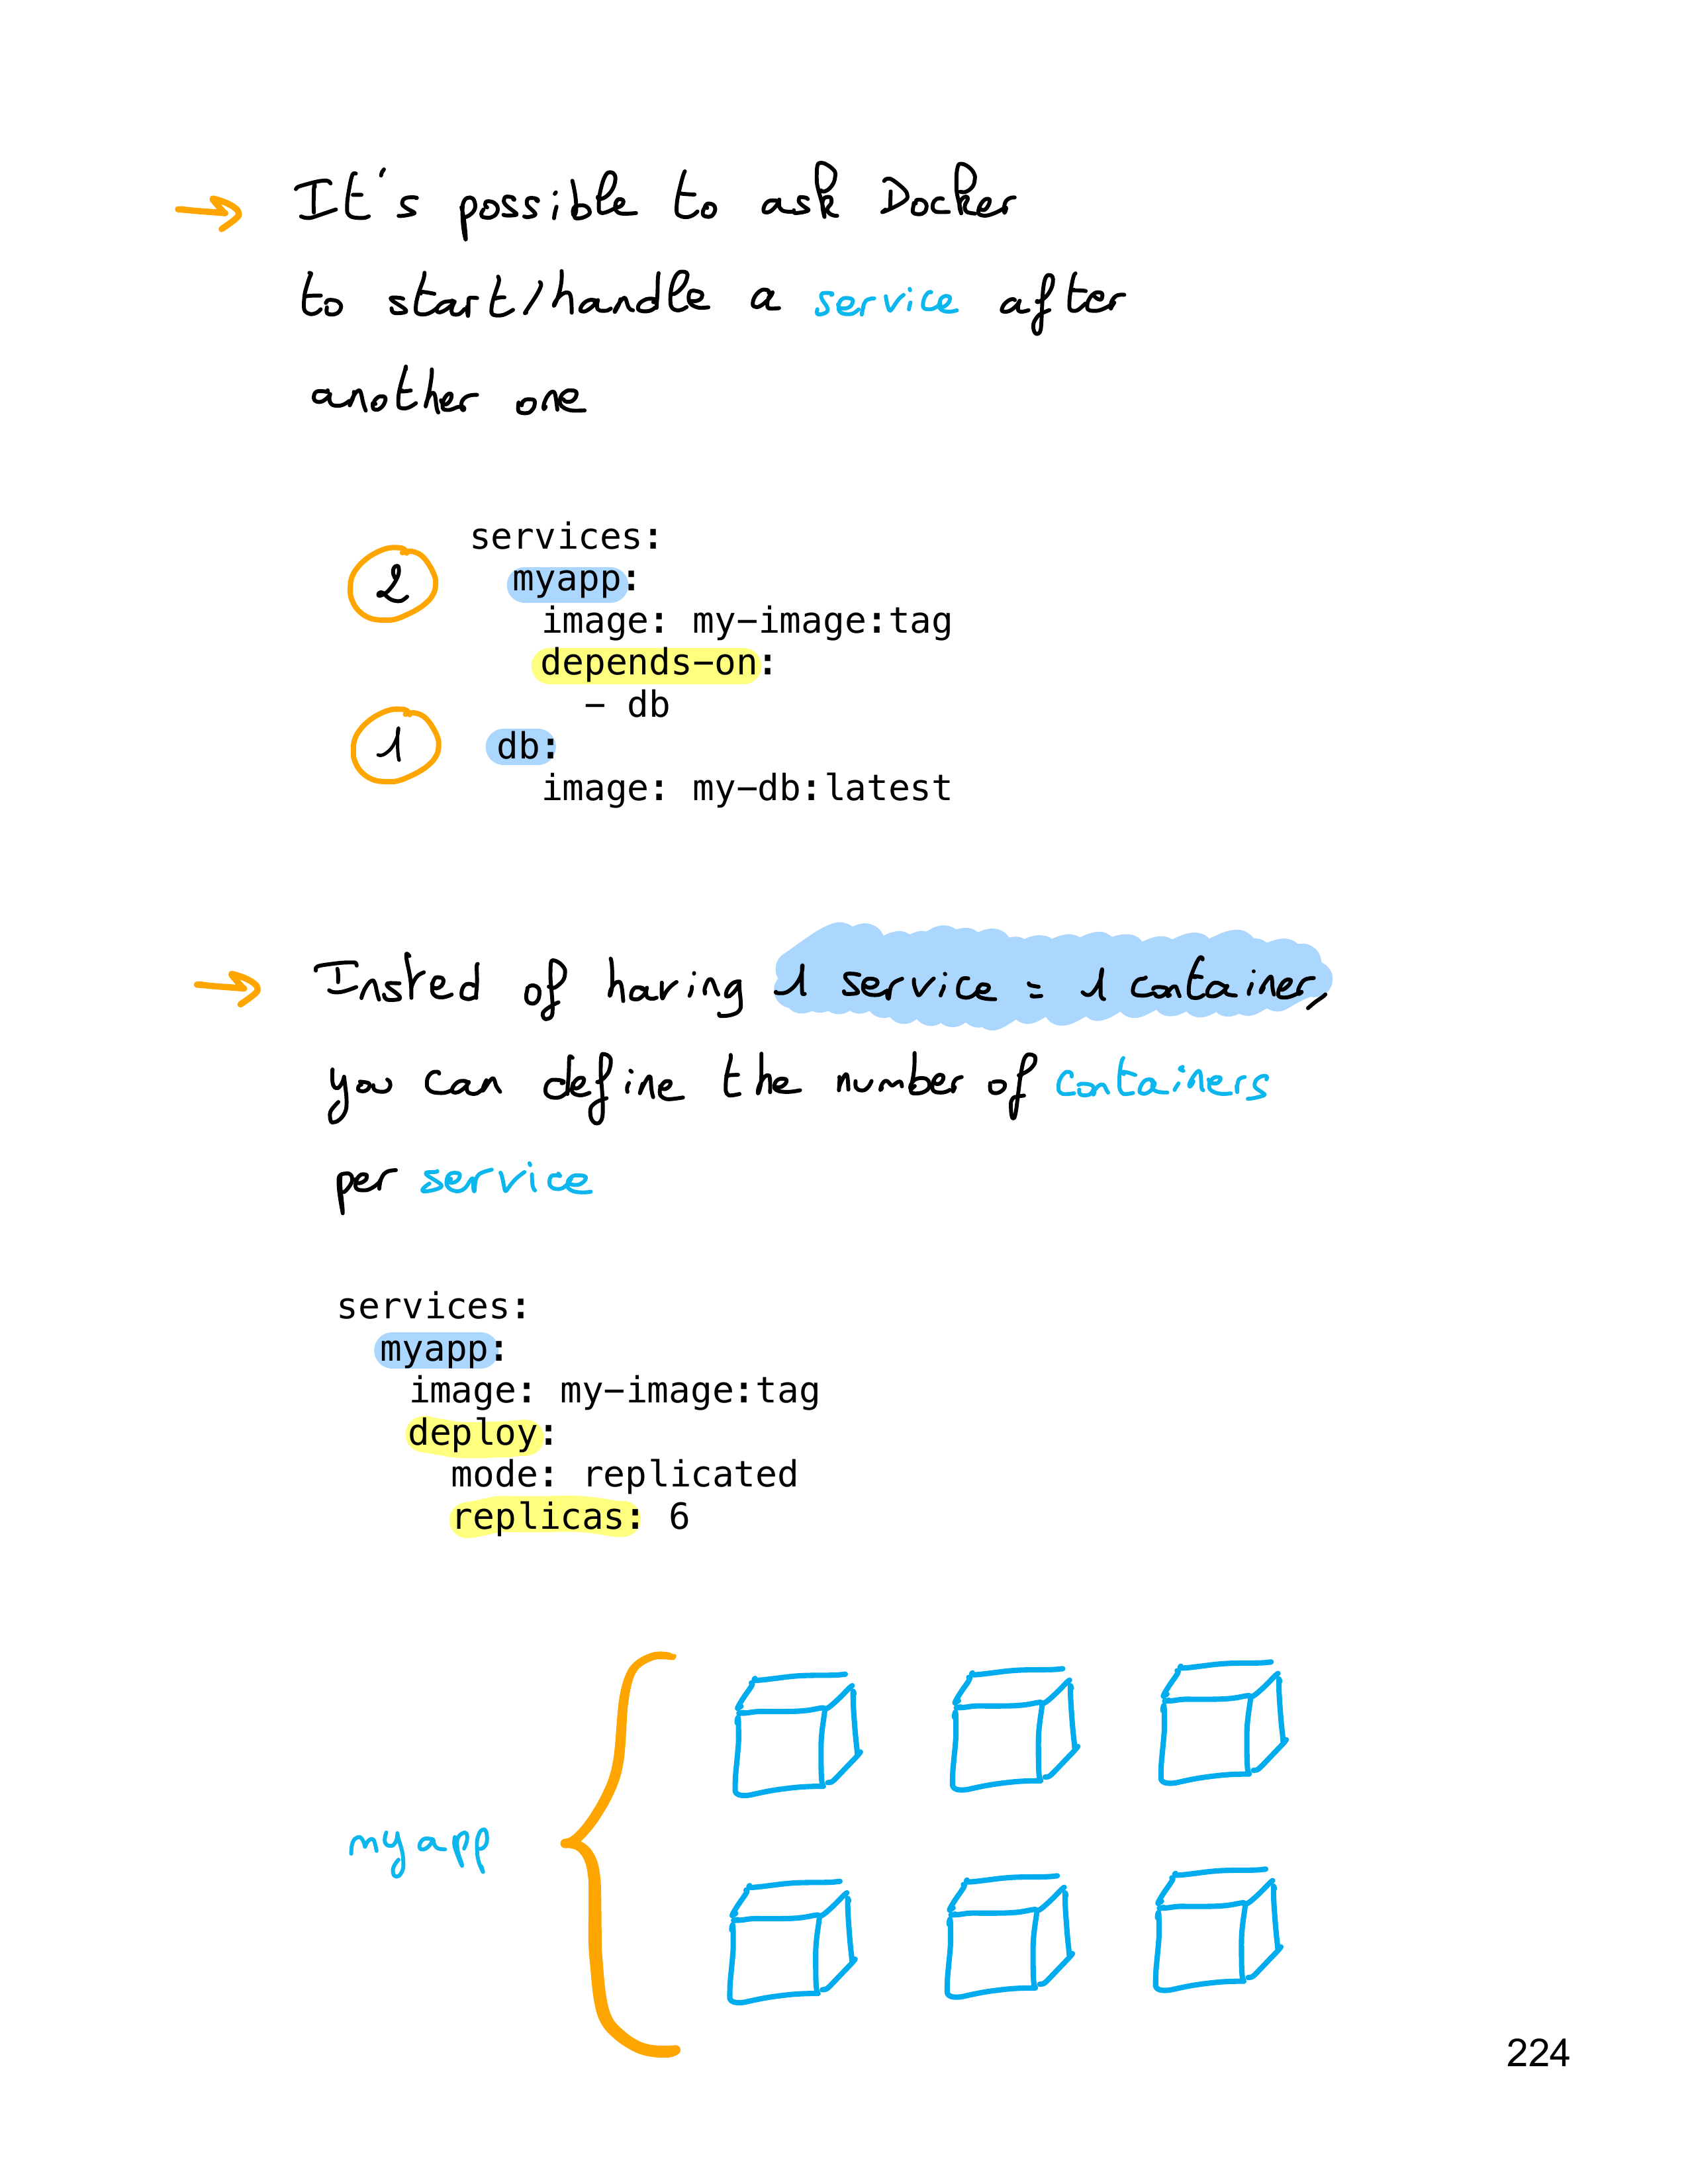 → It's possible to ask Docker
to start/handle a service after
another one
services:
2 myapp:
image: my-image:tag
depends-on:
- db
1 db:
image: my-db:latest
→ Insted of having 1 service = 1 container,
you can define the number of containers
per service
services:
myapp:
image: my-image:tag
deploy:
mode: replicated
replicas: 6
myapp
224